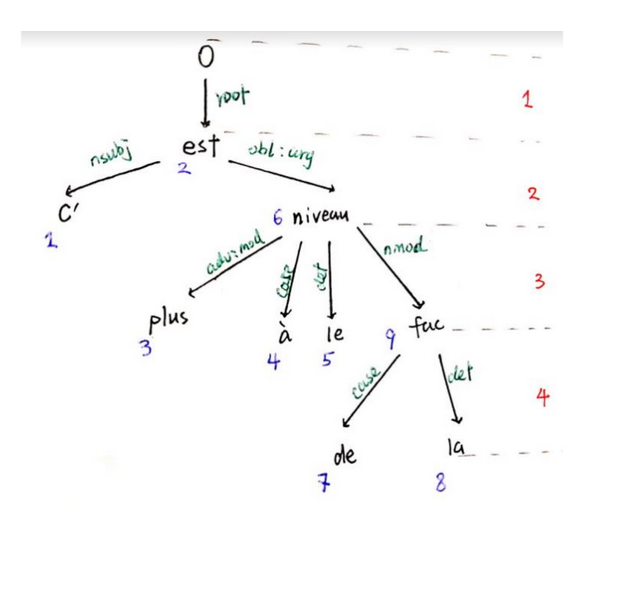 O
root
1
est
2
nsubj
obl:arg
2
C'
1
6 niveau
adv:mod
case
det
nmod
3
plus
3
à
4
le
5
9 fac
case
det
4
de
7
la
8